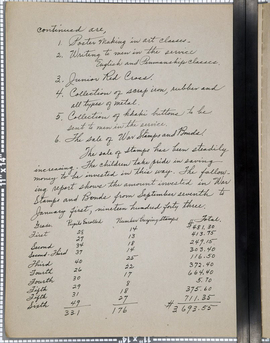 continued are,
1. Poster Making in art classes.
2. Writing to men in the service
English and Penmanship classes
3. Junior Red Cross.
4. Collection of scrap iron, rubber and
all types of metal.
5. Collection of khaki buttons to be
sent to men in the service.
6. The sale of War Stamps and Bonds.
The sale of Stamps has been steadily
increasing. The children take pride in saving
money to be invested in this way. The follow-
ing report shows the amount invested in War
Stamps and Bonds from September seventh to
January first, nineteen hundred forty three.
Grade Pupils Enrolled Number Buying Stamps Total
First 28 14 $481.80
First 29 13 413.75
Second 34 18 249.15
Second-Third 37 14 303.40
Third 40 25 116.50
Fourth 26 22 372.40
Fourth 30 17 664.40
Fifth 29 8 5.70
Fifth 31 18 375.60
Sixth 49 27 711.25
331 176 $3693.55